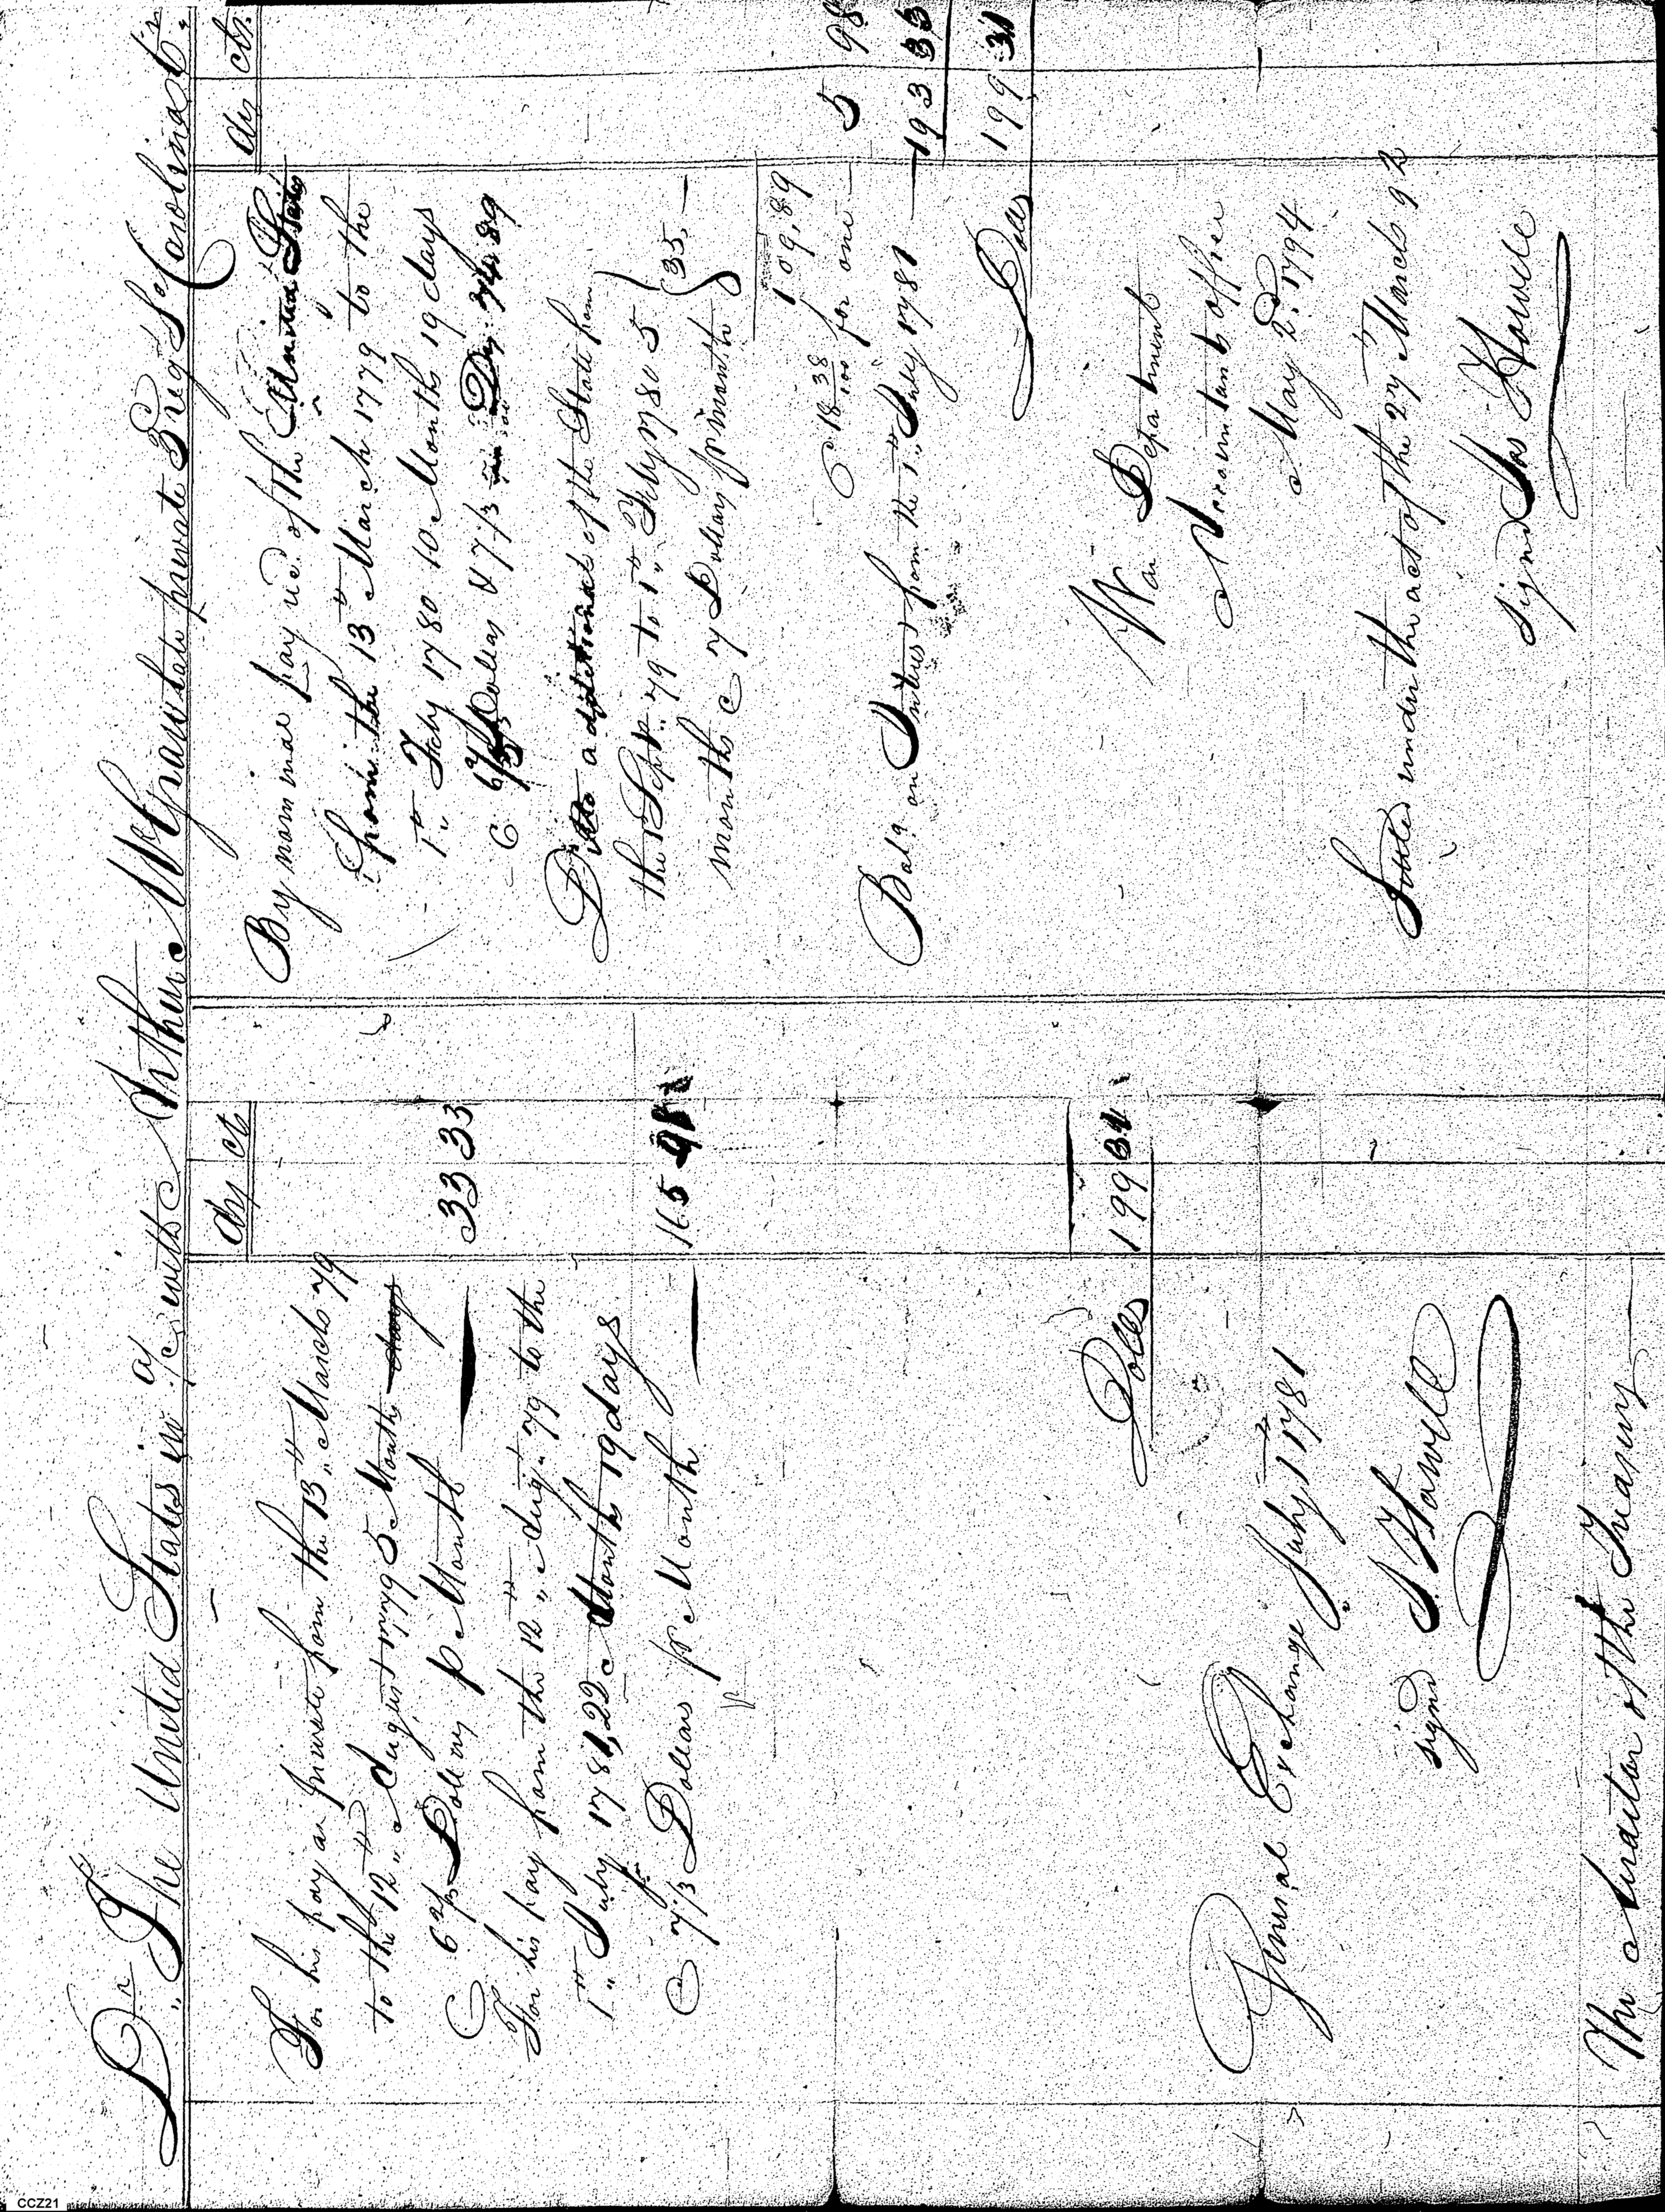 Dr. The United States in a/c with Arthur McGraw late private 3 reg So Carolina Cr.
Drs cts
For his pay as private from the 13th March 79
to the 12th August 1779 5 Months days
@ 6 2/3 Dollars p Month 33 33
For his pay from the 12th Augt 79 to the
1st July 1781, 22 Months 19 days
@ 7 1/3 Dollars pr Month 165 98
Dolls 199 31
General Exchange July 1st 1781
signd J. Howell
The auditor of the Treasury
Drs cts.
By nominal pay recd. of the United States
from the 13th March 1779 to the
1st Feby 1780 10 Months 19 days
@ 6 2/3 Dollars & 7 1/3 74.89
Ditto additional of the State from
the 1 Sept. 79 to 1st Feby 1780 5
months @ 7 Dollars pr month 35.
109.89
@ 18 38/100 for one 5 98
Bala on Interest from the 1st July 1781 193 33
Dolls 199 31
War Department
Accountants office
May 2d. 1794
Settled under the act of the 27th March 92
signd Jos Howell
CCZ21